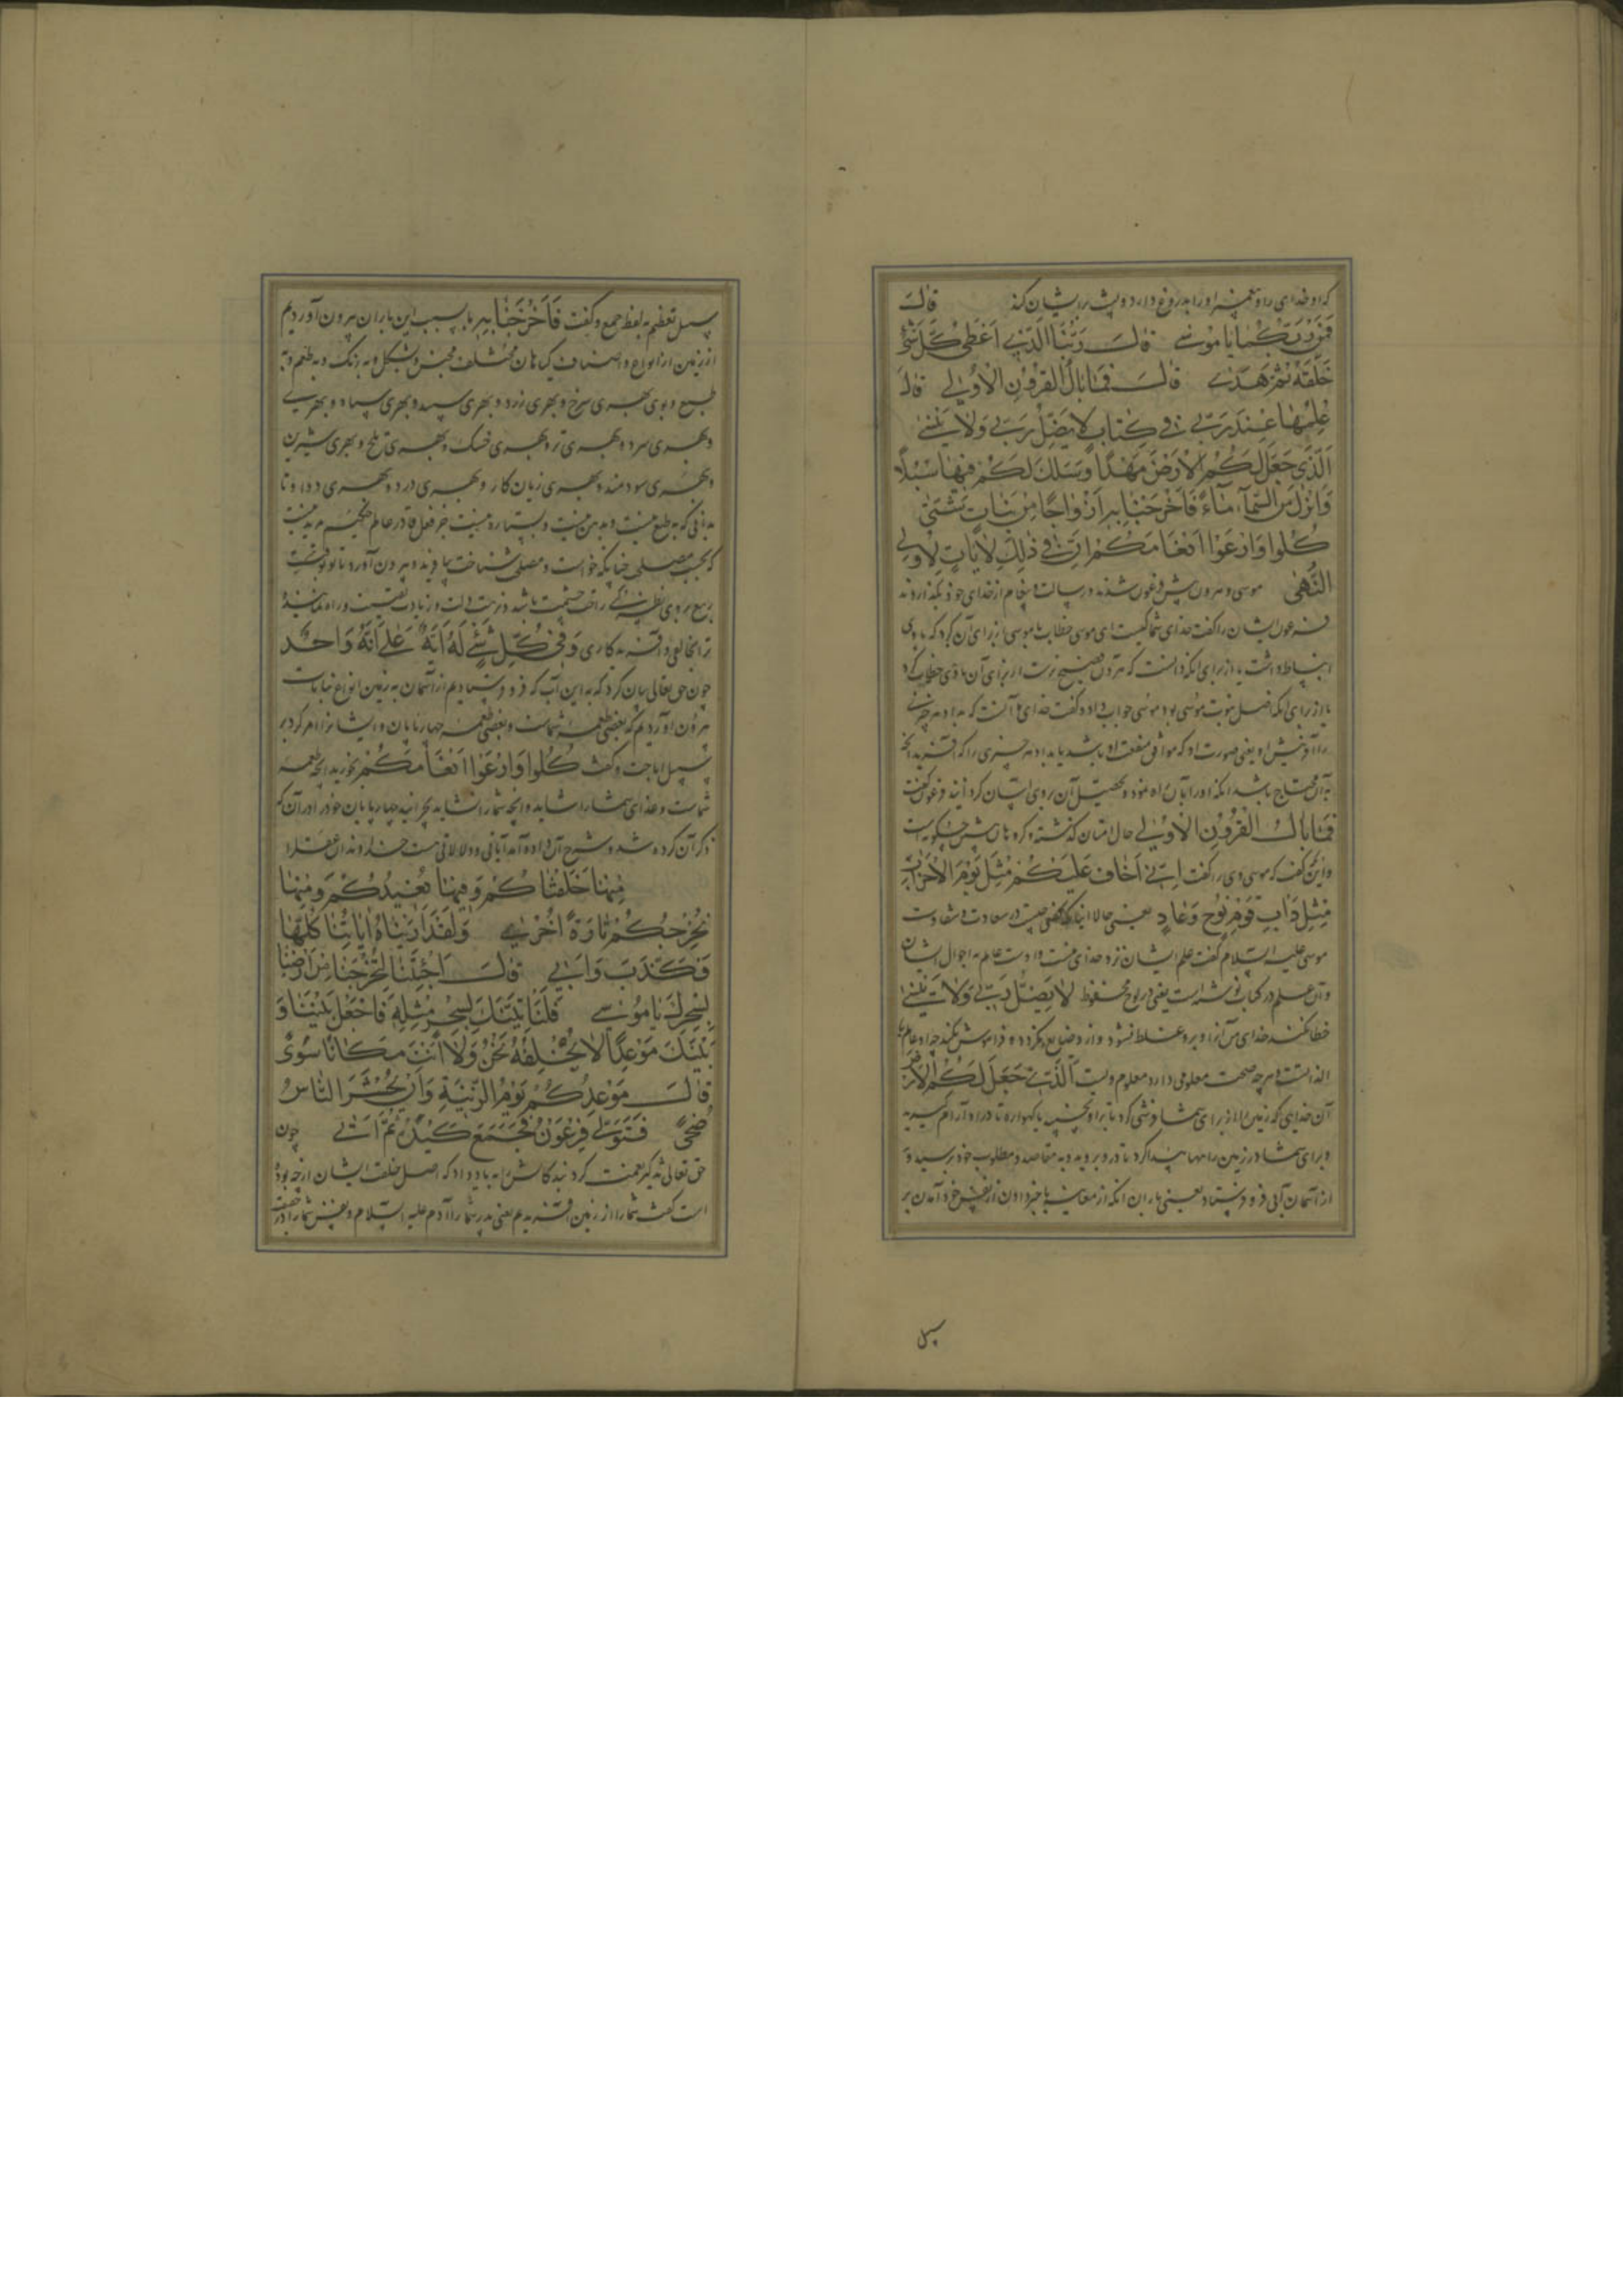 که او خدای را و پیغمبر او را بدروغ دارد و پشت بر ایشان کند قالَ
فَمَنْ رَبُّكُمٰا يٰا مُوسىٰ قٰالَ رَبُّنَا الَّذي اَعْطىٰ كُلَّ شَيْءٍ
خَلْقَهُ ثُمَّ هَدىٰ قٰالَ فَمٰا بٰالُ الْقُرُونِ الْاُولىٰ قٰالَ
عِلْمُهٰا عِنْدَ رَبّي في كِتٰابٍ لا يَضِلُّ رَبّي وَلا يَنْسىٰ
اَلَّذي جَعَلَ لَكُمُ الْاَرْضَ مَهْداً وَسَلَكَ لَكُمْ فيهٰا سُبُلاً
وَاَنْزَلَ مِنَ السَّمٰآءِ مٰآءً فَاَخْرَجْنٰا بِهِ اَزْوٰاجاً مِنْ نَبٰاتٍ شَتّىٰ
كُلُوا وَارْعَوْا اَنْعٰامَكُمْ اِنَّ في ذٰلِكَ لَاٰيٰاتٍ لِاُولِي
النُّهىٰ موسی و هرون پیش فرعون شدند و رسالت و پیغام از خدای خود بگذاردند
فرعون ایشان را گفت خدای شما کیست ای موسی خطاب با موسی از برای آن کرد که با وی
انبساط داشت یا از برای آنکه دانست که هرون فصیح‌تر است از برای آن با وی خطاب کرد
یا از برای آنکه اصل نبوت موسی بود موسی جواب داد و گفت خدای ما آنست که بداد هر چیزی
را آفرینش او یعنی صورت او که موافق منفعت او باشد یا بداد هر چیزی را که آفریده آنچه
به آن محتاج باشد آنکه او را بآن راه نمود و تحصیل آن بر وی آسان کردانید فرعون گفت
فَمٰا بٰالُ الْقُرُونِ الْاُولىٰ حال امتان گذشته و گروهان پیش چگونه است
و این گفت که موسی وی را گفت اِنّي اَخٰافُ عَلَيْكُمْ مِثْلَ يَوْمِ الْاَحْزٰابِ
مِثْلَ دَاْبِ قَوْمِ نُوحٍ وَعٰادٍ یعنی حالا اینان که گفتی چیست در سعادت و شقاوت
موسی علیه السلام گفت علم ایشان نزد خدای منست و اوست عالم به احوال ایشان
و آن علم در کتاب نوشته است یعنی در لوح محفوظ لا يَضِلُّ رَبّي وَلا يَنْسىٰ
خطا نکند خدای من آنرا و بر وی غلط نشود و از و ضایع نگردد و فراموش نکند چه او عالم
الذات است و هر چه صحت معلومی دارد معلوم ویست اَلَّذي جَعَلَ لَكُمُ الْاَرْضَ
آن خدایی که زمین را از برای شما فرشی کرد تا بر او نخسپید یا گهواره تا در او آرام گیرید
و برای شما در زمین راهها پیدا کرد تا در و بروید و به مقاصد و مطلوب خود برسید و
از آسمان آبی فرو فرستاد یعنی باران آنکه از مغایبه با خبر دادن از نفس خود آمد بر
سبیل
سبیل تعظیم به لفظ جمع و گفت فَاَخْرَجْنٰا بِهِ ما بسبب این باران بیرون آوردیم
از زمین از انواع و اصناف گیاهان مختلف بجنس و بشکل و به رنگ و به طعم و به
طبع و بوی بهری سرخ و بهری زرد و بهری سپید و بهری سیاه و بهری
و بهری سرد و بهری تر و بهری خشک و بهری تلخ و بهری شیرین
و بهری سودمند و بهری زیان کار و بهری درد و بهری دوا و تا
بدانی که به طبع نیست و بدین نیست و بستاره نیست جز فعل قادر عالم حکیم مرید نیست
که بحسب مصلحت چنانکه خواست و مصلحت شناخت بیافرید و بیرون آورد تا تو بوقت
ربیع بر وی نظر کنی راحت چشمت باشد و نزهت دلت و زیادت یقینت و راه نماینده
ترا بخالقی و آفریدگاری وَفي كُلِّ شَيْءٍ لَهُ اٰيَةٌ عَلىٰ اَنَّهُ وٰاحِدٌ
چون حق تعالی بیان کرد که به این آب که فرو فرستادیم از آسمان به زمین انواع نباتات
بیرون آوردیم که بعضی طعمه شماست و بعضی طعمه چهارپایان و ایشانرا امر کرد بر
سبیل اباحت و گفت كُلُوا وَارْعَوْا اَنْعٰامَكُمْ بخورید آنچه طعمه
شماست و غذای شما را شاید و آنچه شما را نشاید بچرانید چهارپایان خود را در آن که
ذکر آن کرده شد و شرح آن داده آمد آیاتی و دلالاتی هست خداوندان عقل را
مِنْهٰا خَلَقْنٰاكُمْ وَفيهٰا نُعيدُكُمْ وَمِنْهٰا
نُخْرِجُكُمْ تٰارَةً اُخْرىٰ وَلَقَدْ اَرَيْنٰاهُ اٰيٰاتِنٰا كُلَّهٰا
فَكَذَّبَ وَاَبىٰ قٰالَ اَجِئْتَنٰا لِتُخْرِجَنٰا مِنْ اَرْضِنٰا
بِسِحْرِكَ يٰا مُوسىٰ فَلَنَاْتِيَنَّكَ بِسِحْرٍ مِثْلِهِ فَاجْعَلْ بَيْنَنٰا وَ
بَيْنَكَ مَوْعِداً لا نُخْلِفُهُ نَحْنُ وَلا اَنْتَ مَكٰاناً سُوىً
قٰالَ مَوْعِدُكُمْ يَوْمُ الزّينَةِ وَاَنْ يُحْشَرَ النّٰاسُ
ضُحىً فَتَوَلّىٰ فِرْعَوْنُ فَجَمَعَ كَيْدَهُ ثُمَّ اَتىٰ چون
حق تعالی تذکیر نعمت کرد بندگانش را به یاد داد که اصل خلقت ایشان از چه بوده
است گفت شما را از زمین آفریدیم یعنی پدر شما را آدم علیه السلام و نفس شما را در حقیقت